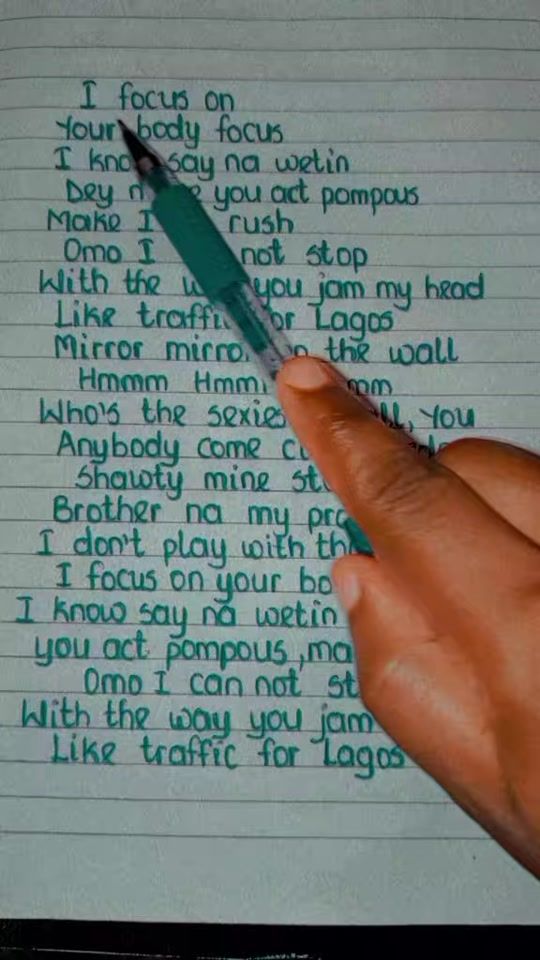 I focus on
Your body focus
I say na wetin
Dey you act pompous
Make I rush
Omo I not stop
With the you jam my head
Like traffic for Lagos
Mirror mirror the wall
Hmmm Hmmm
Who's the you
Anybody come
Shawty mine
Brother na my
I don't play with
I focus on your
I know say na wetin
you act pompous,
Omo I can not
With the way you jam
Like traffic for Lagos